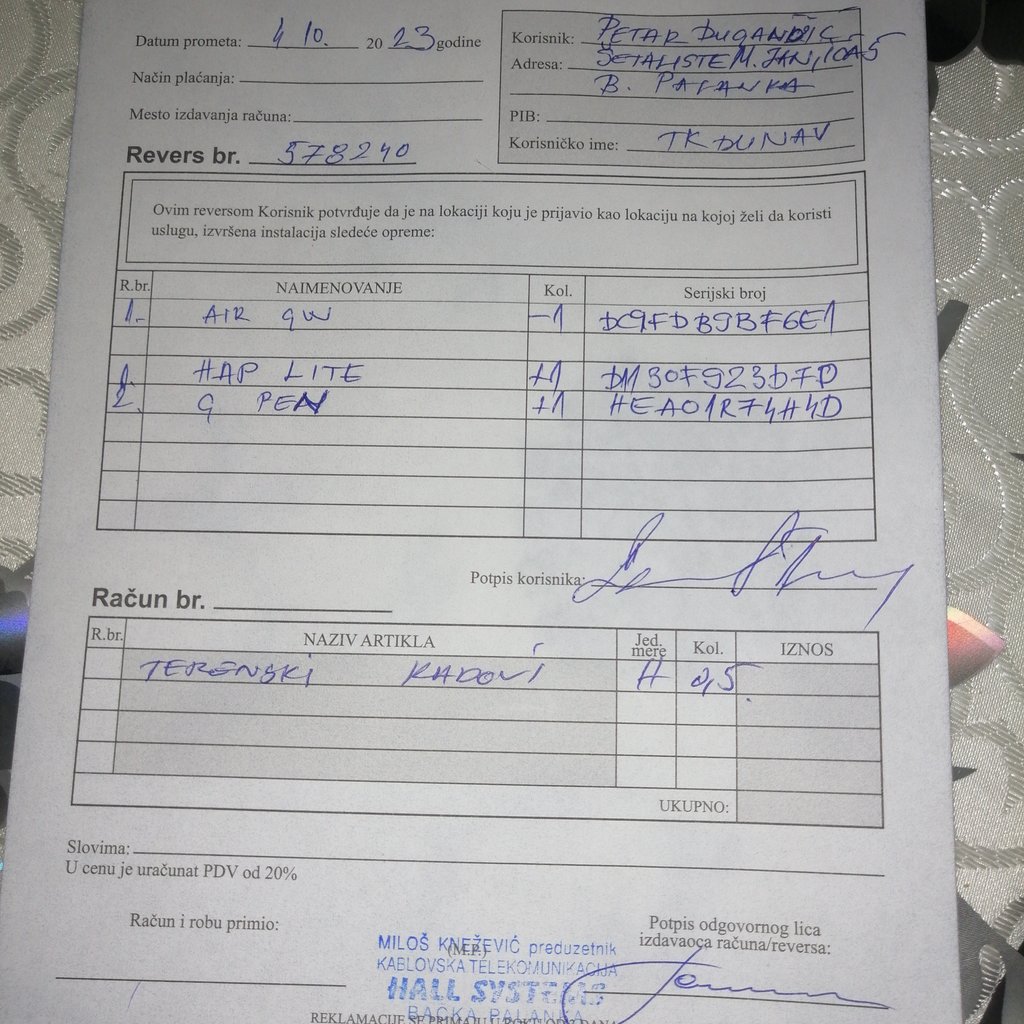 Datum prometa: 4 10. 20 23 godine
Način plaćanja:
Mesto izdavanja računa:
Revers br. 578240
Korisnik: PETAR DUGANDŽIĆ
Adresa: ŠETALIŠTE M. JANJIĆA 5
B. PALANKA
PIB:
Korisničko ime: TK DUNAV
Ovim reversom Korisnik potvrđuje da je na lokaciji koju je prijavio kao lokaciju na kojoj želi da koristi
uslugu, izvršena instalacija sledeće opreme:
R.br. NAIMENOVANJE Kol. Serijski broj
1.- AIR GW -1 DC9FDB9BF6E1
1. HAP LITE +1 D1130F923DFD
2. G PEN +1 HEA01R74H4D
Potpis korisnika:
Račun br.
R.br. NAZIV ARTIKLA Jed. mere Kol. IZNOS
TERENSKI RADOVI H 0,5
UKUPNO:
Slovima:
U cenu je uračunat PDV od 20%
Račun i robu primio:
Potpis odgovornog lica
izdavaoca računa/reversa:
MILOŠ KNEŽEVIĆ preduzetnik
(M.P.)
KABLOVSKA TELEKOMUNIKACIJA
HALL SYSTEMS
BAČKA PALANKA
REKLAMACIJE SE PRIMAJU U ROKU OD DANA